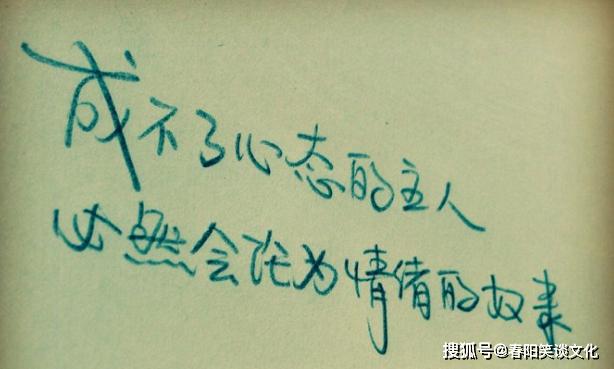 成不了心态的主人
必然会沦为情绪的奴隶
搜狐号@春阳笑谈文化